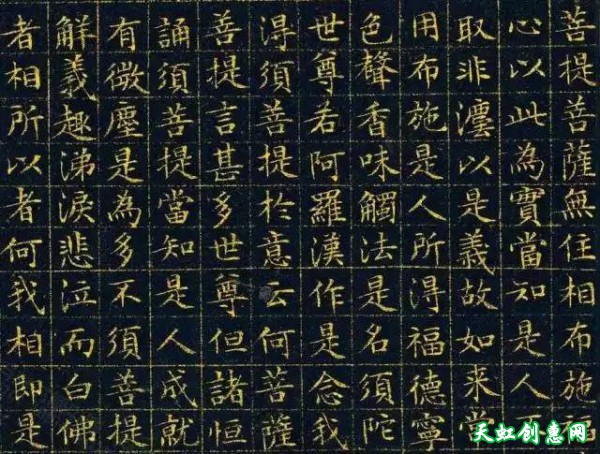 菩提菩薩無住相布施福
心以此為實當知是人
取非灋以是義故如来常
用布施是人所淂福德寧
色聲香味觸法是名須陀
世尊若阿羅漢作是念我
淂須菩提扵意云何菩薩
菩提言甚多世尊但諸恒
誦須菩提當知是人成就
有微塵是為多不須菩提
解義趣涕淚悲泣而白佛
者相所以者何我相即是
天虹创惠网